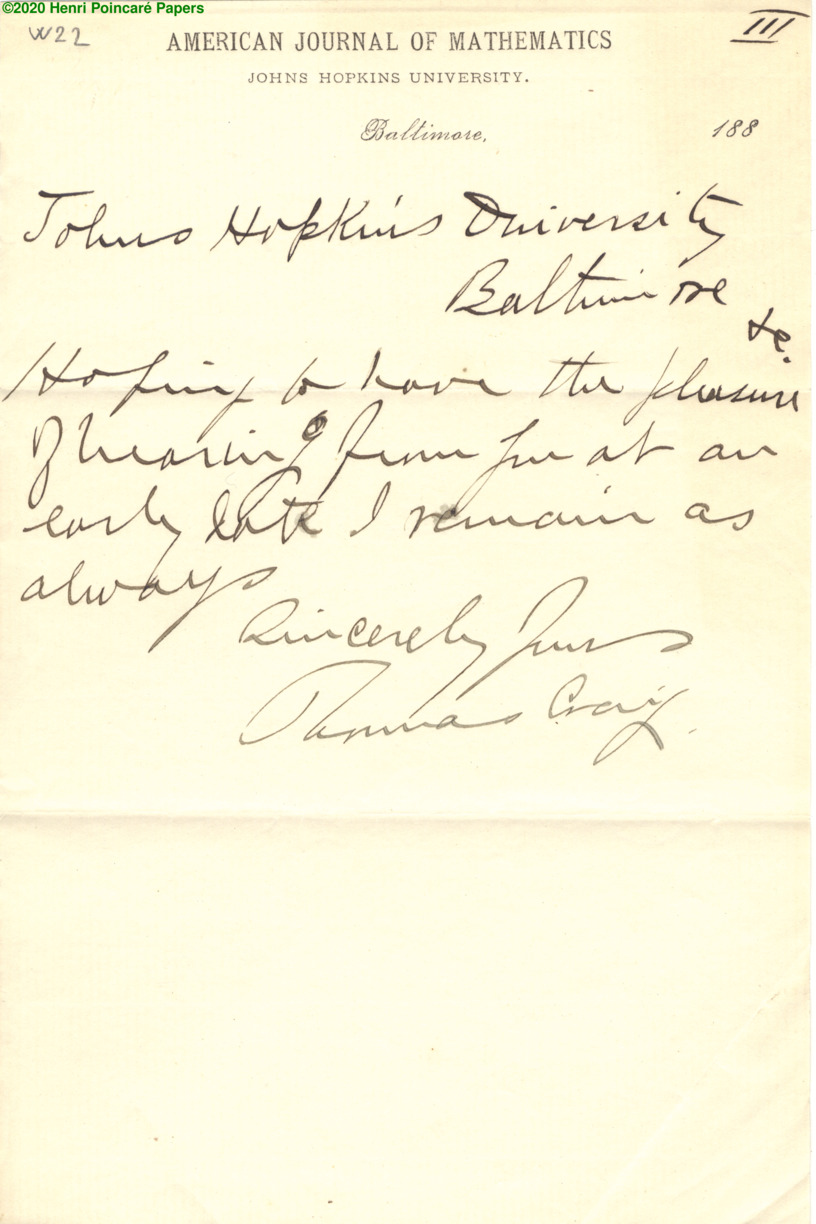 ©2020 Henri Poincaré Papers
W22
III
AMERICAN JOURNAL OF MATHEMATICS
JOHNS HOPKINS UNIVERSITY.
Baltimore, 188
Johns Hopkins University
Baltimore
&c.
Hoping to have the pleasure
of hearing from you at an
early date I remain as
always
Sincerely Yours
Thomas Craig.